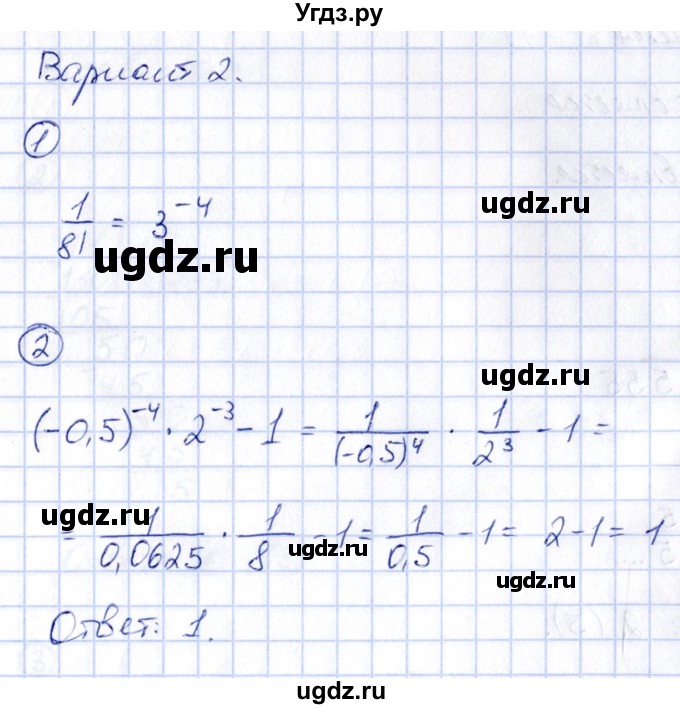 Угдз.ру
Вариант 2.
1
1/81 = 3^-4
ugdz.ru
ugdz.ru
2
(-0,5)^-4 · 2^-3 - 1 = 1/(-0,5)^4 · 1/2^3 - 1 =
ugdz.ru
ugdz.ru
= 1/0,0625 · 1/8 - 1 = 1/0,5 - 1 = 2 - 1 = 1
ugdz.ru
ugdz.ru
ugdz.ru
Ответ: 1.
ugdz.ru